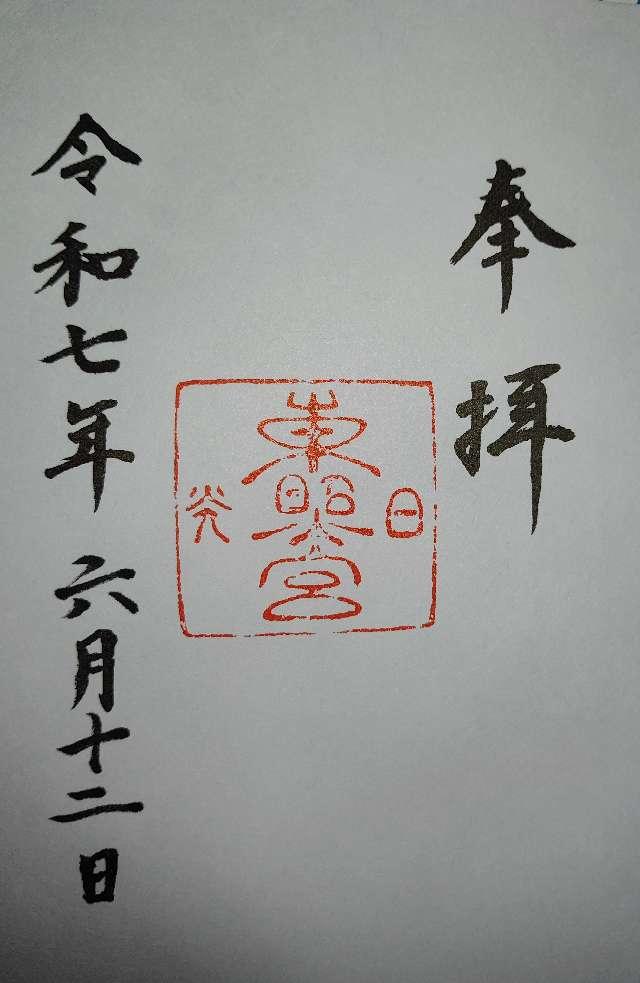 奉拝
日
東照宮
光
令和七年 六月十二日